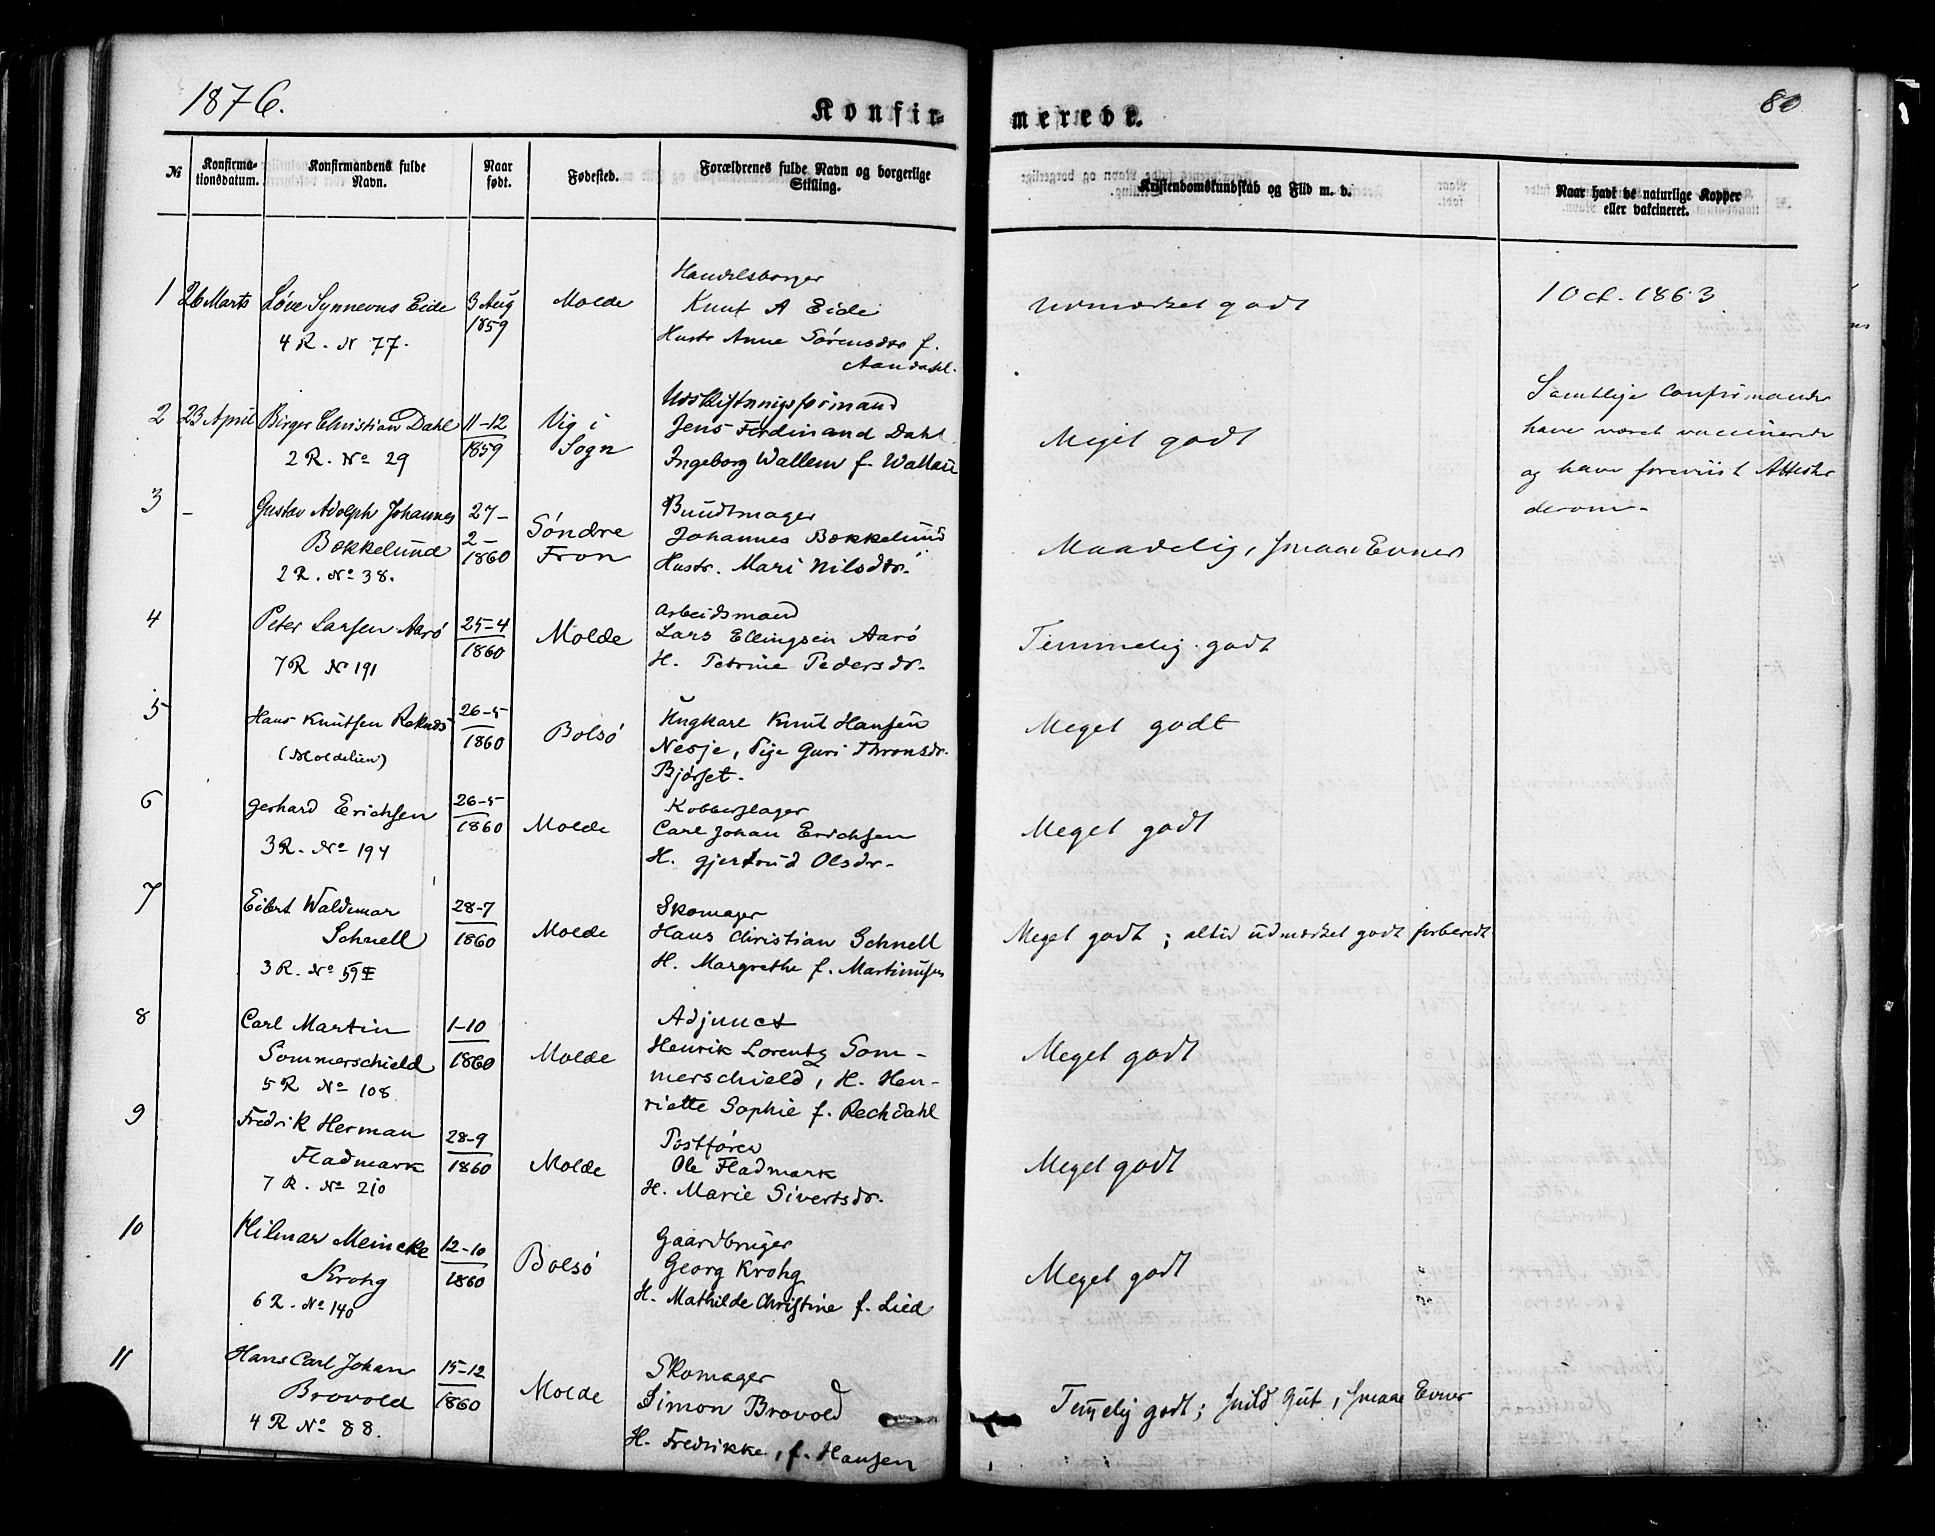 1876.
Konfirmerede.
80
№
Konfirmationsdatum.
Konfirmandens fulde Navn.
Naar født.
Fødested.
Forældrenes fulde Navn og borgerlige Stilling.
Kristendomskundskab og Flid m. v.
Naar havt de naturlige Kopper eller vakcineret.
1
26 Marts
Løve Synnevus Eide
4 R. N 77.
3 Aug
1859
Molde
Handelsborger
Knut A Eide
Hustr Anne Sørensdtr f.
Aandahl.
Udmærket godt
1 Oct. 1863
2
23 April
Birger Christian Dahl
2 R. No 29
11-12
1859
Vig i
Sogn
Udskiftningsformand
Jens Ferdinand Dahl
Ingeborg Wallem f. Wallem
Meget godt
Samtlige Confirmander
have været vaccinerede
og have foreviist Attester
derom.
3
-
Gustav Adolph Johannes
Bækkelund
2 R. No 38.
27-
2-
1860
Søndre
Fron
Bundtmager
Johannes Bækkelund
Hustr. Mari Nilsdtr.
Maadelig, smaae Evner
4
Peter Larsen Aarø
7 R No 191
25-4
1860
Molde
Arbeidsmand
Lars Ellingsen Aarø
H. Petrine Pedersdr.
Temmelig godt
5
Hans Knutsen Reknæs
(Moldelien)
26-5
1860
Bolsø
Ungkare Knut Hansen
Nesje, Pige Guri Thronsdr.
Bjørset.
Meget godt
6
Gerhard Erichsen
3 R. No 194
26-5
1860
Molde
Kobberslager
Carl Johan Erichsen
H. Gjertrud Olsdr.
Meget godt
7
Eibert Waldemar
Schnell
3 R. No 59
28-7
1860
Molde
Skomager
Hans Christian Schnell
H. Margrethe f. Martinusen
Meget godt; altid udmærket godt forberedt
8
Carl Martin
Sommerschield
5 R No 108
1-10
1860
Molde
Adjunct
Henrik Lorentz Som-
merschield, H. Hen-
riette Sophie f. Rechdahl
Meget godt
9
Fredrik Herman
Fladmark
7 R. No 210
28-9
1860
Molde
Postfører
Ole Fladmark
H. Marie Sivertsdr.
Meget godt
10
Hilmar Meincke
Krohg
6 R. No 140
12-10
1860
Bolsø
Gaardbruger
Georg Krohg
H. Mathilde Christine f. Lied
Meget godt
11
Hans Carl Johan
Brovold
4 R No 88.
15-12
1860
Molde
Skomager
Simon Brovold
H. Fredrikke, f. Hansen
Temmelig godt; snild Gut, smaae Evner